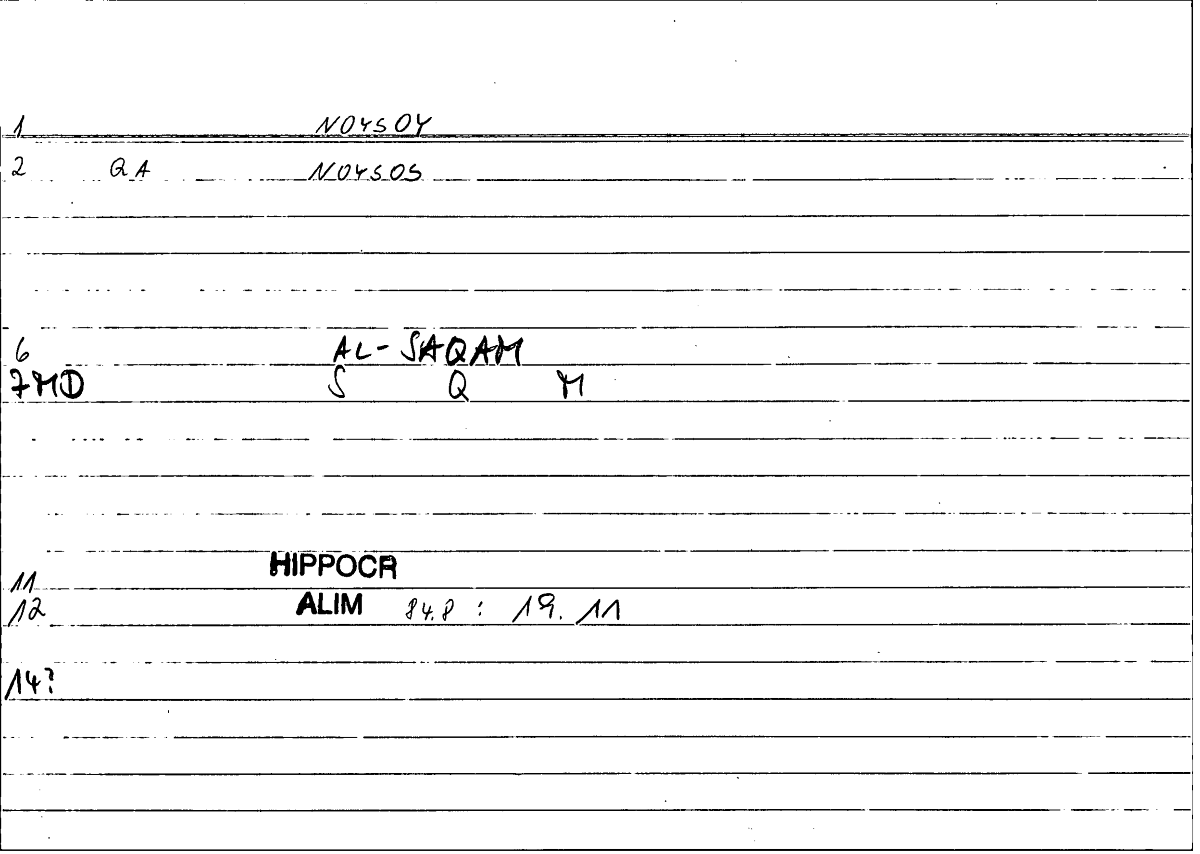 1 NOYSOY
2 QA NOYSOS
6 AL-SAQAM
7MD S Q M
11 HIPPOCR
12 ALIM 84.8 : 19.11
14?